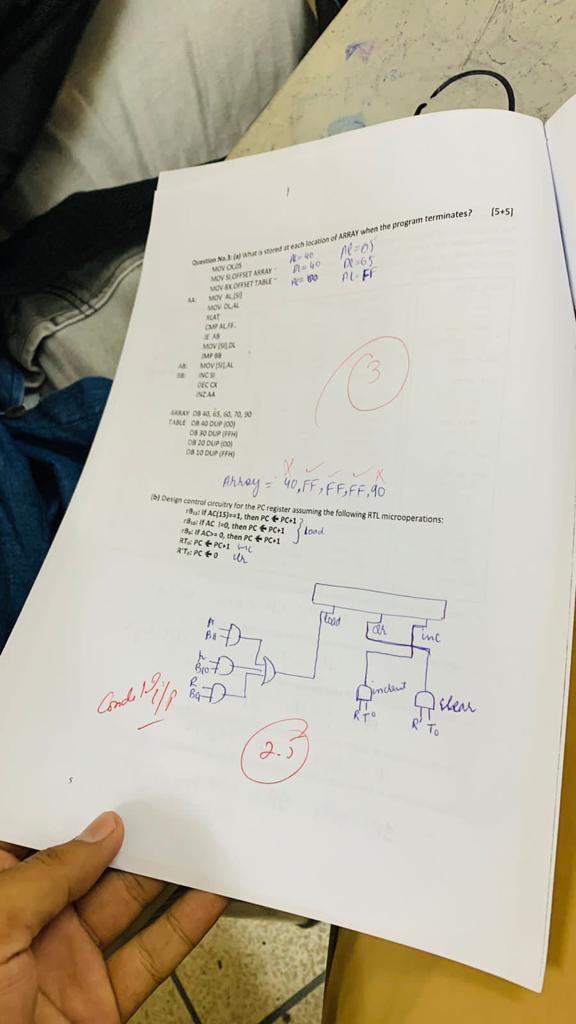 1
Question No.3: (a) What is stored at each location of ARRAY when the program terminates? [5+5]
MOV CX,05
MOV SI,OFFSET ARRAY
MOV BX,OFFSET TABLE
AA: MOV AL,[SI]
MOV DL,AL
XLAT
CMP AL,FF
JE AB
MOV [SI],DL
JMP BB
AB: MOV [SI],AL
BB: INC SI
DEC CX
JNZ AA
Al = 40 Al = 65
Dl = 40 Dl = 65
Al = FF
ARRAY DB 40, 65, 60, 70, 90
TABLE DB 40 DUP (00)
DB 30 DUP (FFH)
DB 20 DUP (00)
DB 10 DUP (FFH)
3
Array = 40, FF, FF, FF, 90
(b) Design control circuitry for the PC register assuming the following RTL microoperations:
rB₁₁: If AC(15)==1, then PC ← PC+1
rB₁₀: If AC !=0, then PC ← PC+1
rB₉: If AC>= 0, then PC ← PC+1
load
RT₀: PC ← PC+1 inc
R'T₀: PC ← 0 clr
load clr inc
B10
R
B9
R T0
clear
R' T0
2.5
5